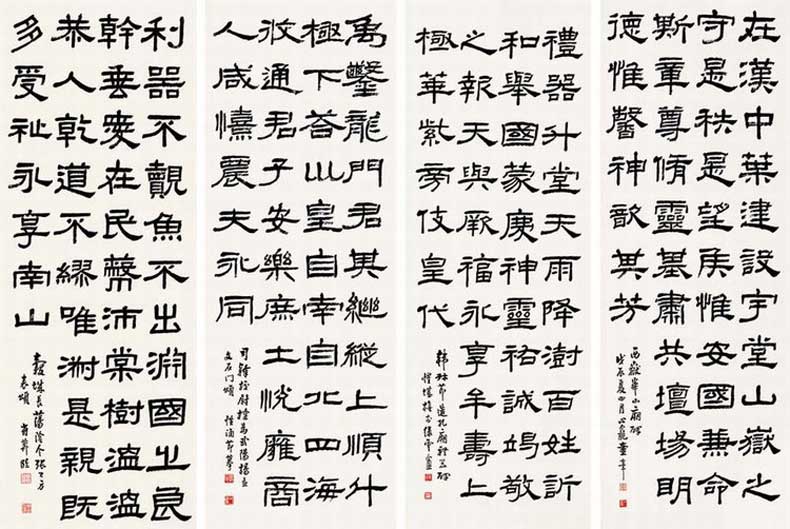 在漢中葉建設宇堂山嶽之
守是秩是望侯惟安國兼命
斯章尊脩靈基肅共壇場明
德惟馨神歆其芳
西嶽華山廟碑
戊辰夏四月
禮器升堂天雨降澍百姓訢
和舉國蒙慶神靈祐誠竭敬
之報天與厥福永享牟壽上
極華紫旁伎皇代
韓勑節造孔廟禮器碑
禹鑿龍門君其繼縱上順斗
極下荅巛皇自南自北四海
攸通君子安樂庶士悅雍商
人咸憘農夫永同
司隸校尉楗為武陽楊君
石門頌
利器不覿魚不出淵國之良
幹垂愛在民蔽沛棠樹溫溫
恭人乾道不繆唯淑是親既
多受祉永享南山
穀城長蕩陰令張君
表頌